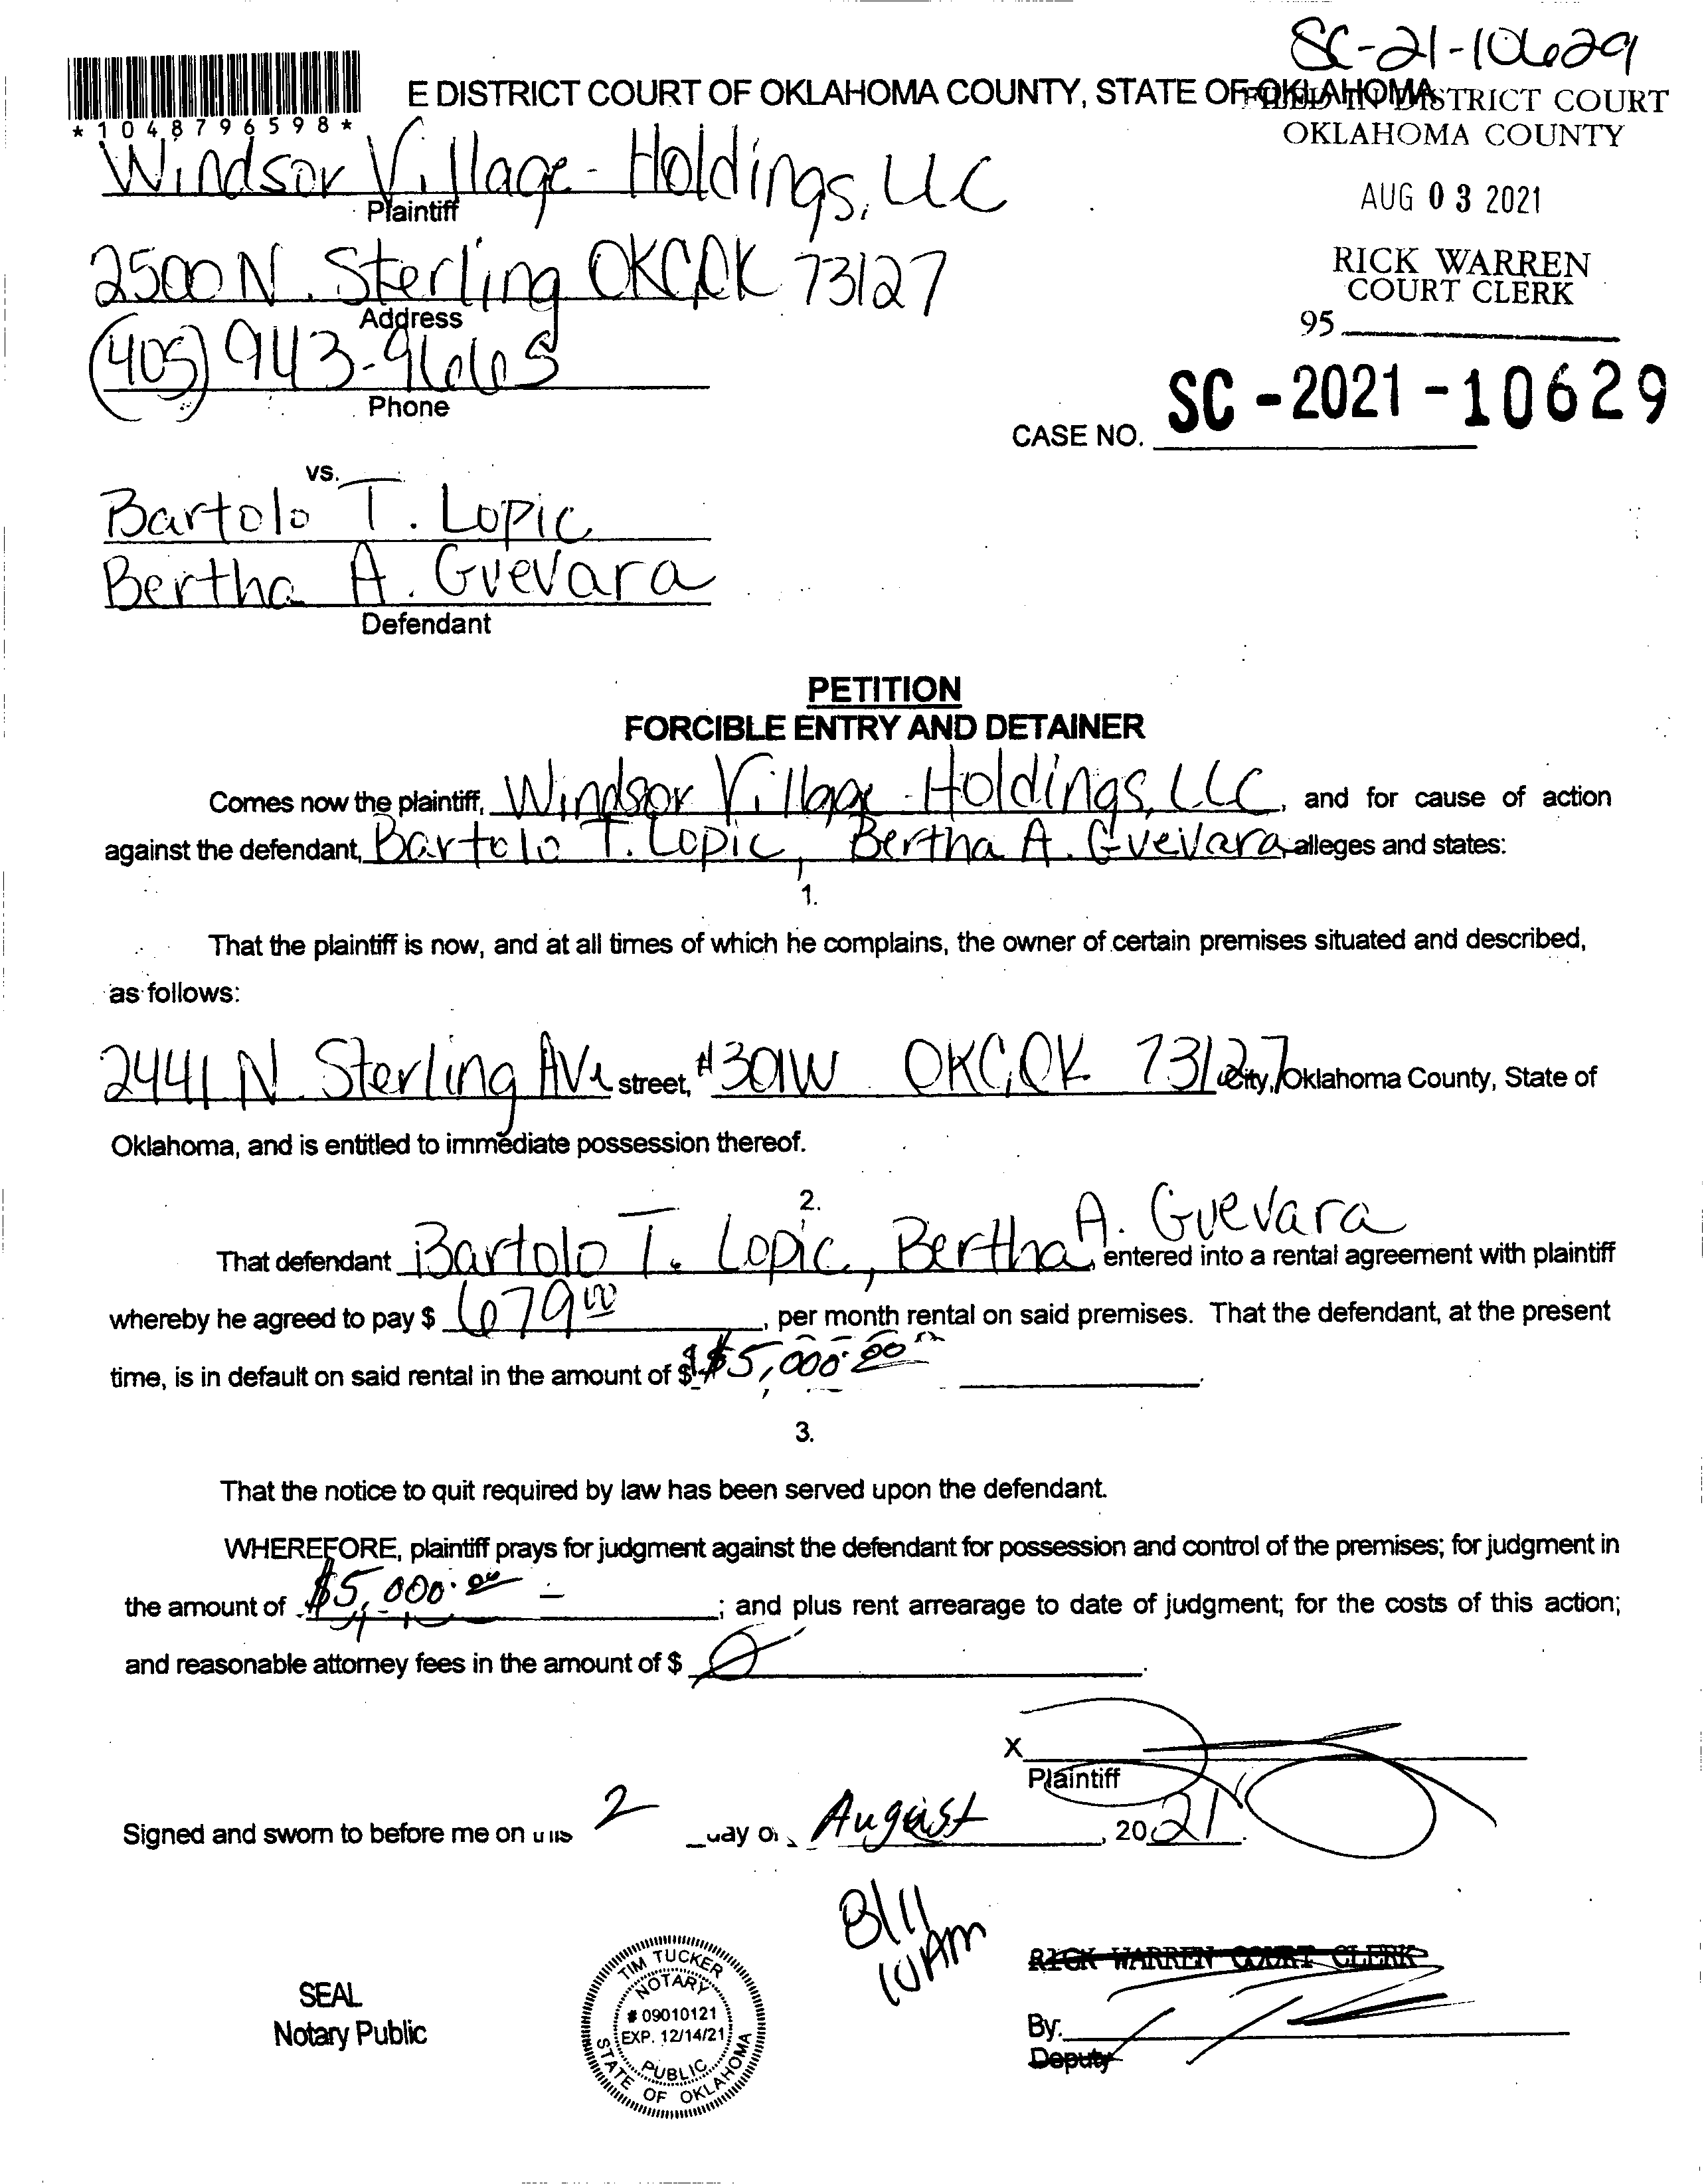 SC-21-10629
E DISTRICT COURT OF OKLAHOMA COUNTY, STATE OF OKLAHOMA
FILED IN DISTRICT COURT
OKLAHOMA COUNTY
*1048796598*
Windsor Village-Holdings, LLC
Plaintiff
AUG 03 2021
2500 N. Sterling OKC, OK 73127
Address
RICK WARREN
COURT CLERK
95
(405) 943-9665
Phone
CASE NO. SC-2021-10629
vs.
Bartolo T. Lopic
Bertha A. Guevara
Defendant
PETITION
FORCIBLE ENTRY AND DETAINER
Comes now the plaintiff, Windsor Village-Holdings, LLC, and for cause of action
against the defendant, Bartolo T. Lopic, Bertha A. Guevara, alleges and states:
1.
That the plaintiff is now, and at all times of which he complains, the owner of certain premises situated and described,
as follows:
2441 N. Sterling Ave street, #301W OKC, OK 73127 City, Oklahoma County, State of
Oklahoma, and is entitled to immediate possession thereof.
2.
That defendant Bartolo T. Lopic, Bertha A. Guevara, entered into a rental agreement with plaintiff
whereby he agreed to pay $ 679.00, per month rental on said premises. That the defendant, at the present
time, is in default on said rental in the amount of $ $5,000.00.
3.
That the notice to quit required by law has been served upon the defendant.
WHEREFORE, plaintiff prays for judgment against the defendant for possession and control of the premises; for judgment in
the amount of $5,000.00 ; and plus rent arrearage to date of judgment; for the costs of this action;
and reasonable attorney fees in the amount of $ 0.
X
Plaintiff
Signed and sworn to before me on this 2 day of August, 2021.
8/11
10AM
RICK WARREN COURT CLERK
SEAL
Notary Public
TIM TUCKER
NOTARY
# 09010121
EXP. 12/14/21
PUBLIC
STATE OF OKLAHOMA
By:
Deputy